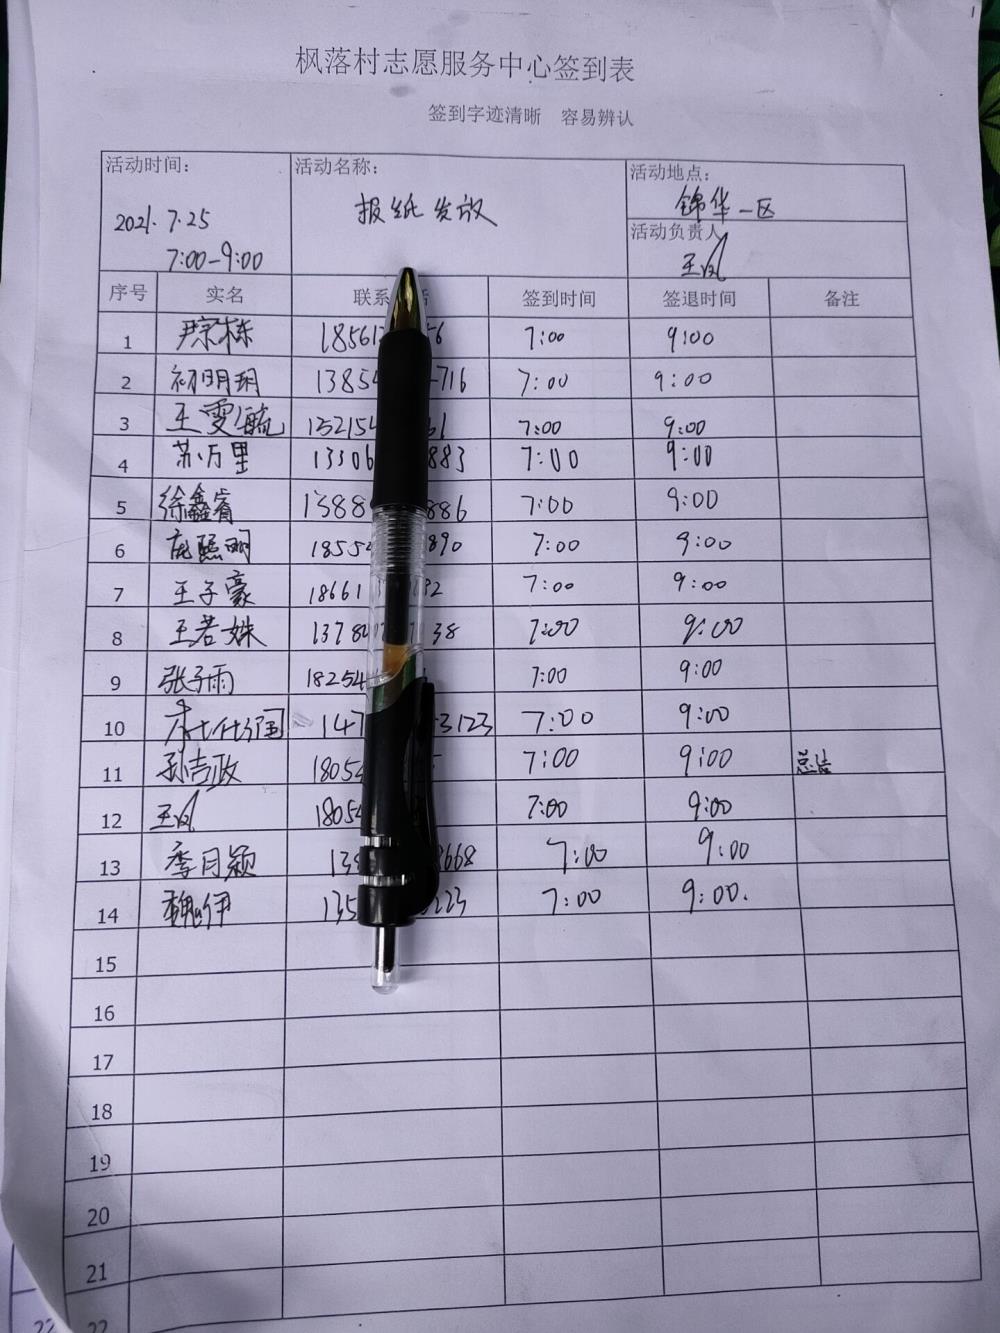 枫落村志愿服务中心签到表
签到字迹清晰 容易辨认
活动时间： 活动名称： 活动地点：
2021.7.25 报纸发放 锦华一区
7:00-9:00 活动负责人
王凤
序号 实名 联系 话 签到时间 签退时间 备注
1 尹宗栋 1856 56 7:00 9:00
2 初明玥 1385 716 7:00 9:00
3 王雯毓 132154 61 7:00 9:00
4 苏万里 13306 883 7:00 9:00
5 徐鑫睿 1388 886 7:00 9:00
6 庞熙明 1855 890 7:00 9:00
7 王子豪 18661 32 7:00 9:00
8 王若姝 1378 38 7:00 9:00
9 张子雨 18254 7:00 9:00
10 147 3123 7:00 9:00
11 孙吉政 18054 7:00 9:00 总结
12 王凤 18054 7:00 9:00
13 季月颖 13 8668 7:00 9:00
14 魏伊 135 223 7:00 9:00.
15
16
17
18
19
20
21
22 22